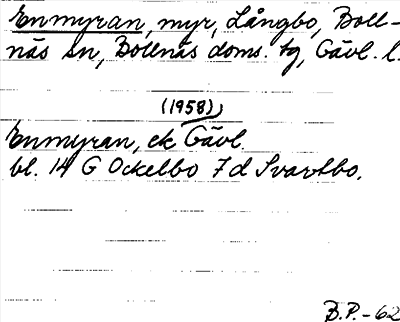 Enmyran, myr, Långbo, Boll-
näs sn, Bollnäs doms. tg, Gävl. l.
(1958)
Enmyran, ek Gävl.
bl. 14 G Ockelbo 7 d Svartbo.
B.P.-62